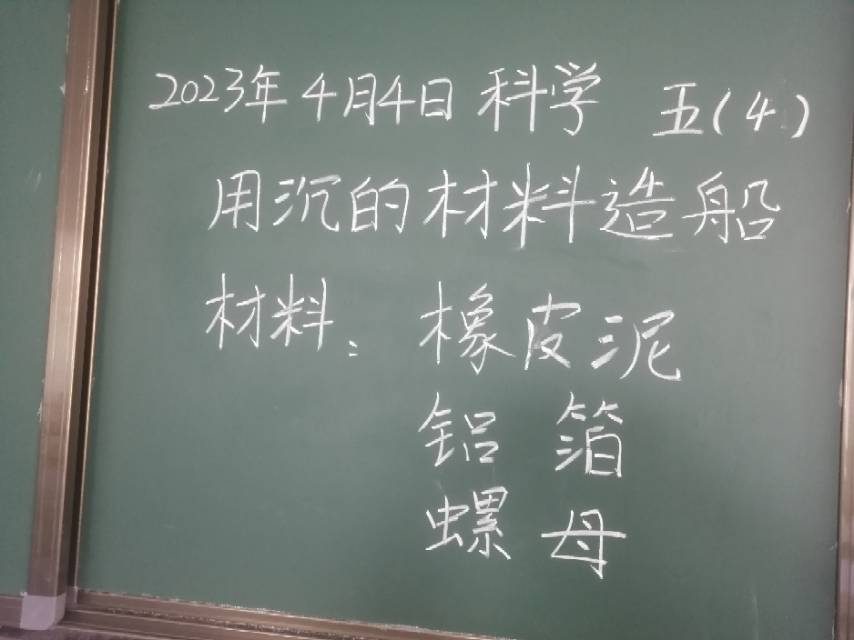 2023年4月4日 科学 五(4)
用沉的材料造船
材料: 橡皮泥
铝箔
螺母